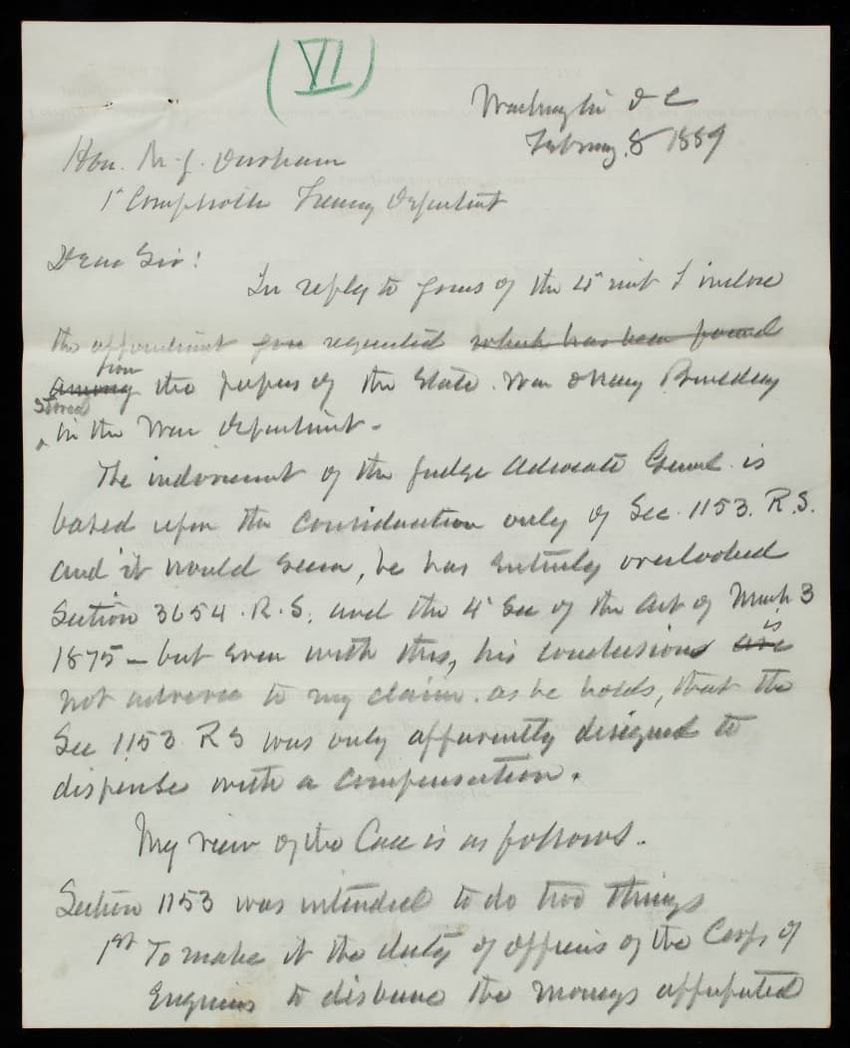 (VI)
Washington D C
February 8 1889
Hon. M. J. Durham
1st Comptroller Treasury Department
Dear Sir:
In reply to yours of the 4" inst I inclose
the appointment you requested which has been found
from
among the papers of the State. War & Navy Building
stored
in the War Department.
The indorsement of the Judge Advocate Genl. is
based upon the consideration only of Sec. 1153. R.S.
and it would seem, he has entirely overlooked
Section 3654. R.S. and the 4" Sec of the Act of March 3
is
1875 – but even with this, his conclusions are
not adverse to my claim. as he holds, that the
Sec 1153 RS was only apparently designed to
dispense with a compensation.
My view of the Case is as follows.
Section 1153 was intended to do two things
1st To make it the duty of officers of the Corps of
Engineers to disburse the moneys appropriated